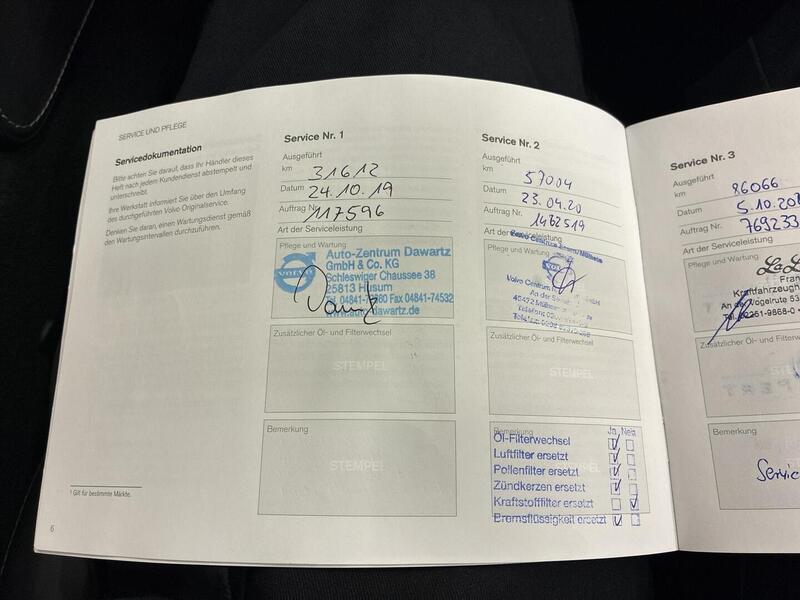 SERVICE UND PFLEGE
Servicedokumentation
Bitte achten Sie darauf, dass Ihr Händler dieses
Heft nach jedem Kundendienst abstempelt und
unterschreibt.
Ihre Werkstatt informiert Sie über den Umfang
des durchgeführten Volvo Originalservice.
Denken Sie daran, einen Wartungsdienst gemäß
den Wartungsintervallen durchzuführen.
¹ Gilt für bestimmte Märkte.
6
Service Nr. 1
Ausgeführt
km 31612
Datum 24.10.19
Auftrag Nr. 117596
Art der Serviceleistung
Pflege und Wartung
VOLVO
Auto-Zentrum Dawartz
GmbH & Co. KG
Schleswiger Chaussee 38
25813 Husum
Tel. 04841- Fax 04841-74532
www.auto-dawartz.de
Zusätzlicher Öl- und Filterwechsel
STEMPEL
Bemerkung
STEMPEL
Service Nr. 2
Ausgeführt
km 57004
Datum 23.04.20
Auftrag Nr. 1462519
Art der Serviceleistung
Pflege und Wartung
Volvo Centrum GmbH
An der
45472
Telefon
Telefax
Zusätzlicher Öl- und Filterwechsel
STEMPEL
Bemerkung
Ja Nein
Öl-Filterwechsel
Luftfilter ersetzt
Pollenfilter ersetzt
Zündkerzen ersetzt
Kraftstofffilter ersetzt
Bremsflüssigkeit ersetzt
Service Nr. 3
Ausgeführt
km 86066
Datum 5.10.20
Auftrag Nr. 769233
Art der Serviceleistung
Pflege und Wartung
Fran
Kraftfahrzeugh
An der Vogelrute 53
Tel. 02251-9868-0
Zusätzlicher Öl- und Filterwechsel
Bemerkung
Servic